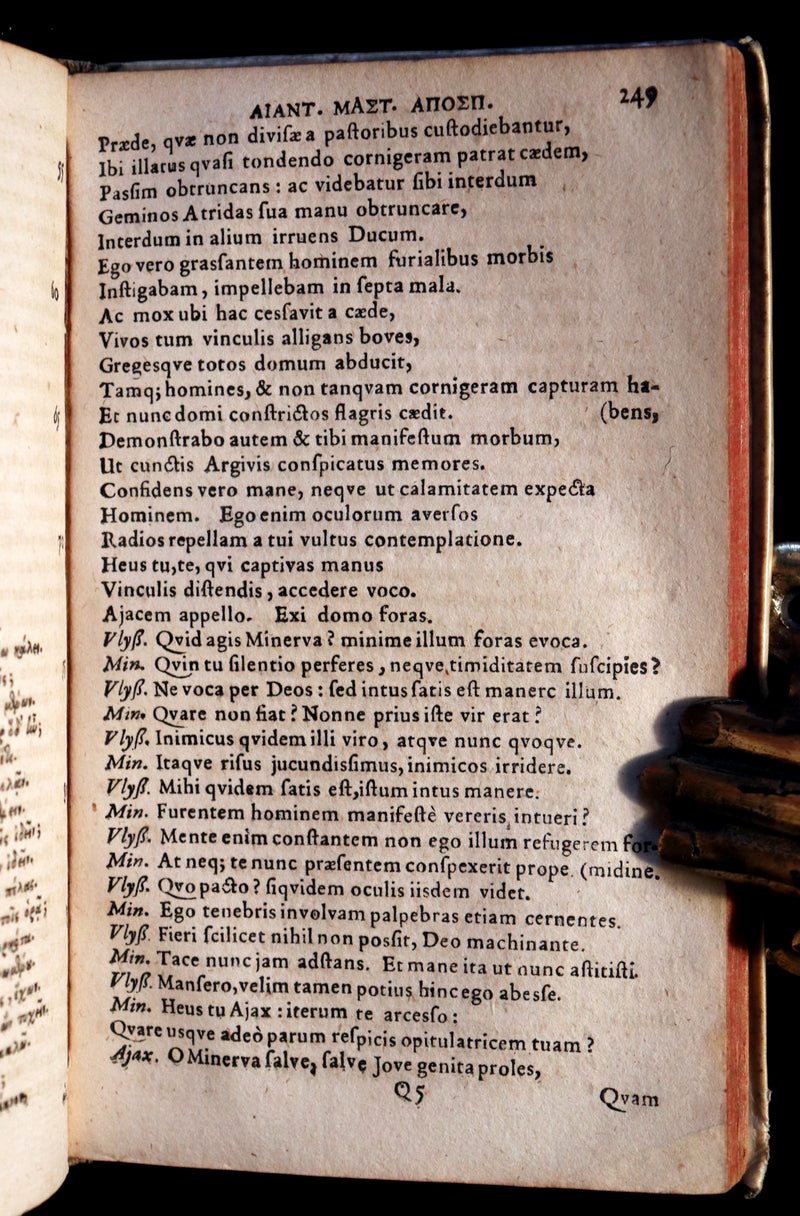 ΑΙΑΝΤ. ΜΑΣΤ. ΑΠΟΣΠ. 249
Prædc, qvæ non divisæ a paſtoribus cuſtodiebantur,
Ibi illatus qvaſi tondendo cornigeram patrat cædem,
Pasſim obtruncans : ac videbatur ſibi interdum
Geminos Atridas ſua manu obtruncare,
Interdum in alium irruens Ducum.
Ego vero grasſantem hominem furialibus morbis
Inſtigabam, impellebam in ſepta mala.
Ac mox ubi hac cesſavit a cæde,
Vivos tum vinculis alligans boves,
Gregesqve totos domum abducit,
Tamqȝ homines, & non tanqvam cornigeram capturam ha-
Et nunc domi conſtrictos flagris cædit. (bens,
Demonſtrabo autem & tibi manifeſtum morbum,
Ut cunctis Argivis conſpicatus memores.
Confidens vero mane, neqve ut calamitatem expecta
Hominem. Ego enim oculorum averſos
Radios repellam a tui vultus contemplatione.
Heus tu,te, qvi captivas manus
Vinculis diſtendis, accedere voco.
Ajacem appello. Exi domo foras.
Vlyſſ. Qvid agis Minerva ? minime illum foras evoca.
Min. Qvin tu ſilentio perferes, neqve timiditatem ſuſcipies ?
Vlyſſ. Ne voca per Deos : ſed intus ſatis eſt manere illum.
Min. Qvare non fiat ? Nonne prius iſte vir erat ?
Vlyſſ. Inimicus qvidem illi viro, atqve nunc qvoqve.
Min. Itaqve riſus jucundisſimus, inimicos irridere.
Vlyſſ. Mihi qvidem ſatis eſt, iſtum intus manere.
Min. Furentem hominem manifeſtè vereris intueri ?
Vlyſſ. Mente enim conſtantem non ego illum refugerem for-
Min. At neqȝ te nunc præſentem conſpexerit prope. (midine.
Vlyſſ. Qvo pacto ? ſiqvidem oculis iisdem videt.
Min. Ego tenebris involvam palpebras etiam cernentes.
Vlyſſ. Fieri ſcilicet nihil non posſit, Deo machinante.
Min. Tace nunc jam adſtans. Et mane ita ut nunc aſtitiſti.
Vlyſſ. Manſero, velim tamen potius hinc ego abesſe.
Min. Heus tu Ajax : iterum te arcesſo :
Qvare usqve adeò parum reſpicis opitulatricem tuam ?
Ajax. O Minerva ſalve, ſalve Jove genita proles,
Q5 Qvam